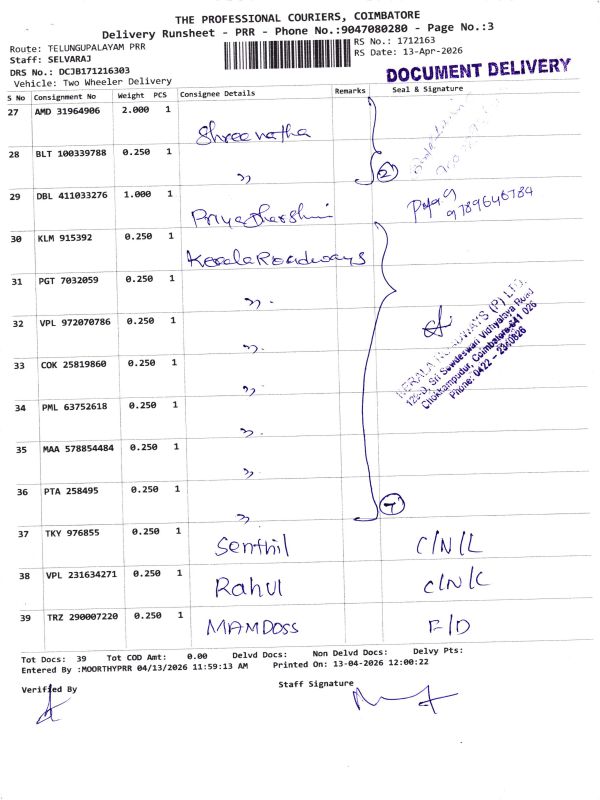 THE PROFESSIONAL COURIERS, COIMBATORE
Delivery Runsheet - PRR - Phone No.:9047080280 - Page No.:3
Route: TELUNGUPALAYAM PRR
RS No.: 1712163
Staff: SELVARAJ
RS Date: 13-Apr-2026
DRS No.: DCJB171216303
Vehicle: Two Wheeler Delivery
DOCUMENT DELIVERY
S No Consignment No Weight PCS Consignee Details Remarks Seal & Signature
27 AMD 31964906 2.000 1 Shreenatha
28 BLT 100339788 0.250 1 〃 2
29 DBL 411033276 1.000 1 Priyadharshini 9789646784
30 KLM 915392 0.250 1 KeralaRoadways
31 PGT 7032059 0.250 1 〃
32 VPL 972070786 0.250 1 〃
KERALA ROADWAYS (P) LTD.
Sri Sowdeswari Vidhyalaya Road
Chokkampudur, Coimbatore-641 026
Phone: 0422 - 2340826
33 COK 25819860 0.250 1 〃
34 PML 63752618 0.250 1 〃
35 MAA 578854484 0.250 1 〃
36 PTA 258495 0.250 1 〃 7
37 TKY 976855 0.250 1 Senthil C/N/L
38 VPL 231634271 0.250 1 Rahul C/N/C
39 TRZ 290007220 0.250 1 MAMDOSS F/D
Tot Docs: 39 Tot COD Amt: 0.00 Delvd Docs: Non Delvd Docs: Delvy Pts:
Entered By :MOORTHYPRR 04/13/2026 11:59:13 AM Printed On: 13-04-2026 12:00:22
Verified By
Staff Signature